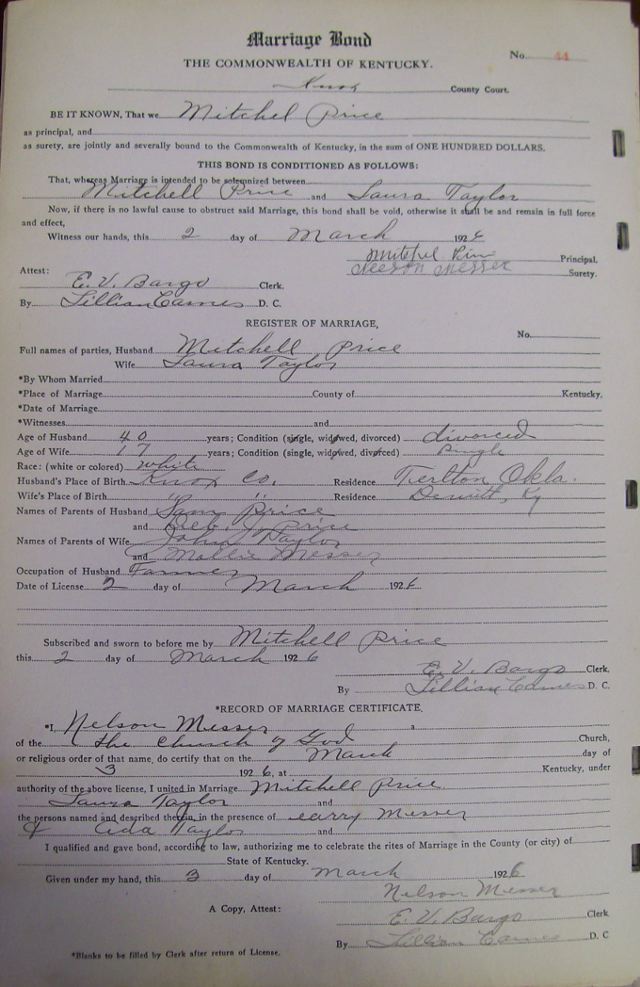 Marriage Bond
No. 44
THE COMMONWEALTH OF KENTUCKY.
Knox County Court.
BE IT KNOWN, That we Mitchel Price
as principal, and
as surety, are jointly and severally bound to the Commonwealth of Kentucky, in the sum of ONE HUNDRED DOLLARS.
THIS BOND IS CONDITIONED AS FOLLOWS:
That, whereas Marriage is intended to be solemnized between
Mitchell Price and Laura Taylor
Now, if there is no lawful cause to obstruct said Marriage, this bond shall be void, otherwise it shall be and remain in full force
and effect,
Witness our hands, this 2 day of March 1926
Principal,
Nelson Messer Surety.
Attest:
E. V. Bargo Clerk.
By Lillian Carnes D. C.
REGISTER OF MARRIAGE,
No.
Full names of parties, Husband Mitchell Price
Wife Laura Taylor
*By Whom Married
*Place of Marriage County of Kentucky.
*Date of Marriage
*Witnesses and
Age of Husband 40 years; Condition (single, widowed, divorced) divorced
Age of Wife 17 years; Condition (single, widowed, divorced) Single
Race: (white or colored) white
Husband's Place of Birth Knox Co. Residence Terlton Okla.
Wife's Place of Birth " " Residence Dewitt, Ky
Names of Parents of Husband Sam Price
and J. Price
Names of Parents of Wife John Taylor
and Mollie Messer
Occupation of Husband Farmer
Date of License 2 day of March 1926
Subscribed and sworn to before me by Mitchell Price
this 2 day of March 1926
E. V. Bargo Clerk,
By Lillian Carnes D. C.
*RECORD OF MARRIAGE CERTIFICATE.
*I, Nelson Messer a
of the the Church of God Church,
or religious order of that name, do certify that on the March day of
3 1926, at Kentucky, under
authority of the above license, I united in Marriage Mitchell Price
Laura Taylor and
the persons named and described therein, in the presence of Larry Messer
& Ada Taylor and
I qualified and gave bond, according to law, authorizing me to celebrate the rites of Marriage in the County (or city) of
State of Kentucky.
Given under my hand, this 3 day of March 1926
Nelson Messer
A Copy, Attest: E. V. Bargo Clerk
By Lillian Carnes D. C
*Blanks to be filled by Clerk after return of License.